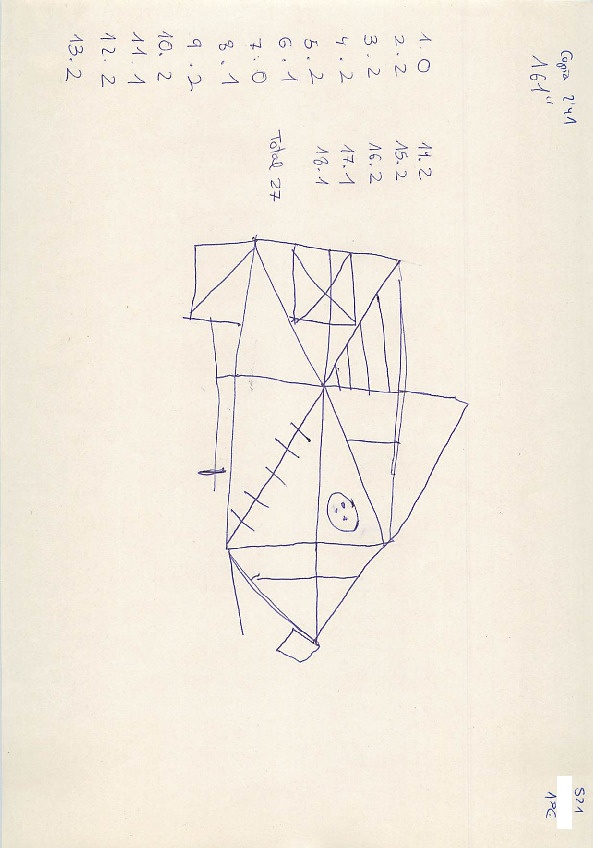 Copia 2'41
161"
1. 0
2. 2
3. 2
4. 2
5. 2
6. 1
7. 0
8. 1
9. 2
10. 2
11. 1
12. 2
13. 2
14. 2
15. 2
16. 2
17. 1
18. 1
Total 27
S21